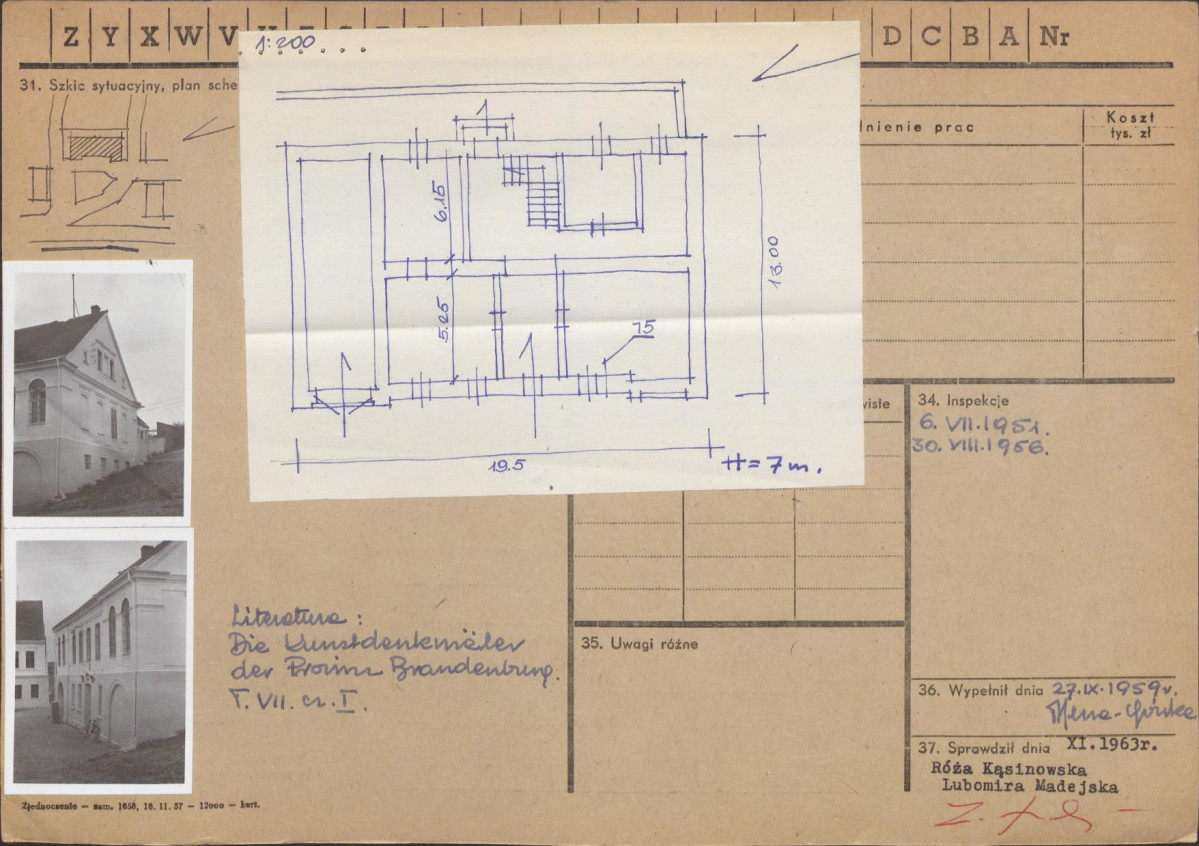 Z Y X W V
D C B A Nr
1:200
31. Szkic sytuacyjny, plan sche
lnienie prac
Koszt
tys. zł
1
6.15
5.25
13.00
75
1
1
19.5
H = 7 m.
wiste
34. Inspekcje
6. VII. 1951.
30. VIII. 1956.
Literatura:
Die Kunstdenkmäler
der Provinz Brandenburg.
T. VII. cz. I.
35. Uwagi różne
36. Wypełnił dnia 27.IX.1959r.
37. Sprawdził dnia XI.1963r.
Róża Kąsinowska
Lubomira Madejska
Zjednoczenie — zam. 1656, 16. 11. 57 — 12000 — kart.